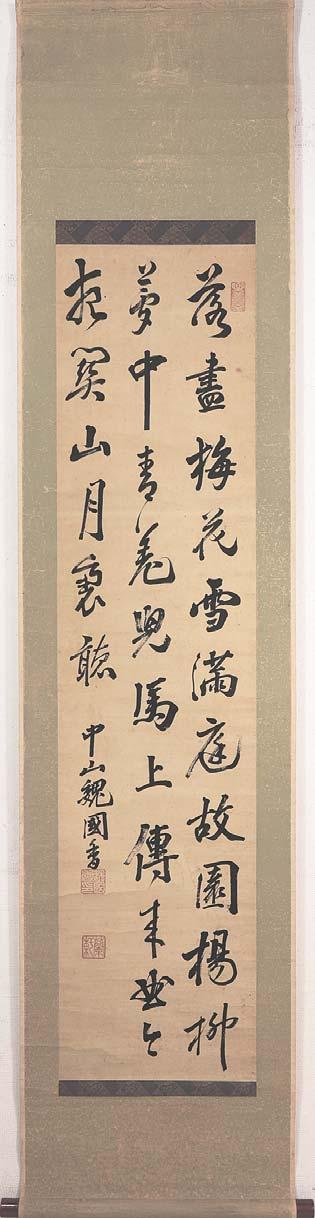 落盡梅花雪滿庭故園楊柳
夢中青羌兒馬上傳来曲今
夜関山月裏聴
中山魏國香